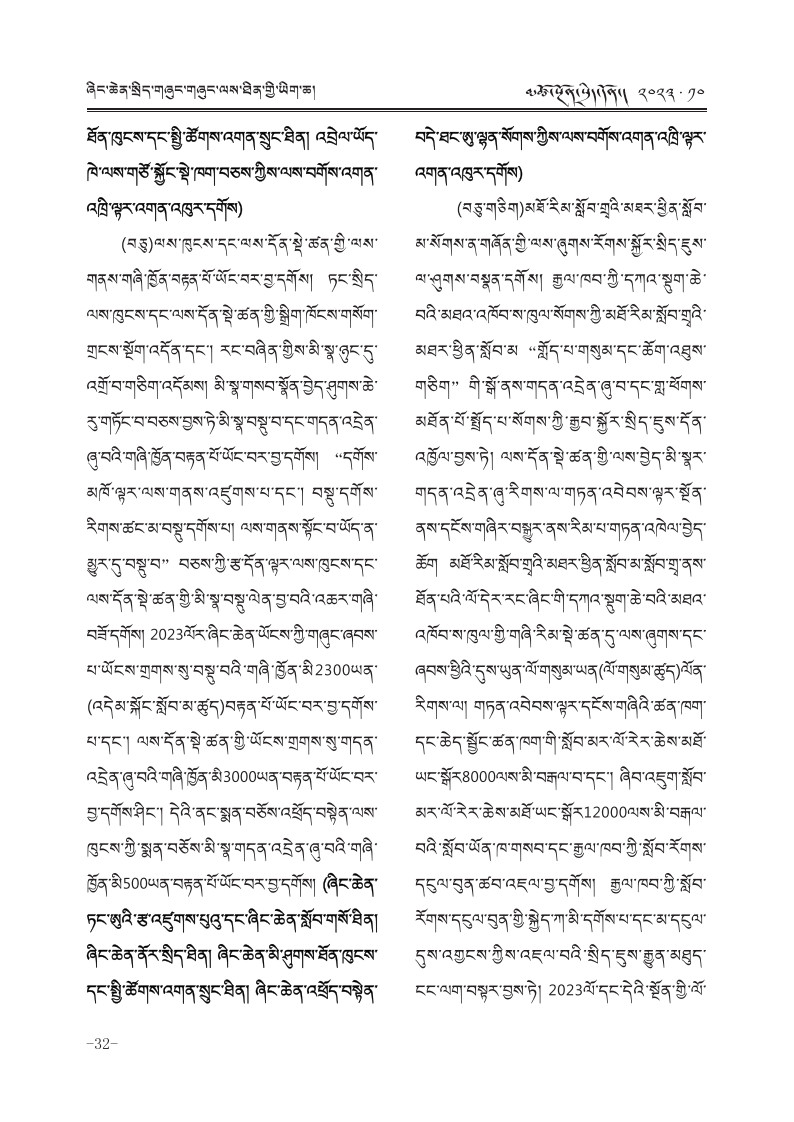 ཞིང་ཆེན་སྲིད་གཞུང་གཞུང་ལས་ཐིན་གྱི་ཡིག་ཆ།
༢༠༢༣ · ༡༠
ཐོན་ཁུངས་དང་སྤྱི་ཚོགས་འགན་སྲུང་ཐིན། འབྲེལ་ཡོད་
ཁེ་ལས་གཙོ་སྐྱོང་སྡེ་ཁག་བཅས་ཀྱིས་ལས་བགོས་འགན་
འཁྲི་ལྟར་འགན་འཁུར་དགོས)
(བཅུ)ལས་ཁུངས་དང་ལས་དོན་སྡེ་ཚན་གྱི་ལས་
གནས་གཞི་ཁྱོན་བརྟན་པོ་ཡོང་བར་བྱ་དགོས། ཏང་སྲིད་
ལས་ཁུངས་དང་ལས་དོན་སྡེ་ཚན་གྱི་སྒྲིག་ཁོངས་གསོག་
གྲངས་སྔོག་འདོན་དང་། རང་བཞིན་གྱིས་མི་སྣ་ཉུང་དུ་
འགྲོ་བ་གཅིག་འདོམས། མི་སྣ་གསབ་སྣོན་བྱེད་ཤུགས་ཆེ་
རུ་གཏོང་བ་བཅས་བྱས་ཏེ་མི་སྣ་བསྡུ་བ་དང་གདན་འདྲེན་
ཞུ་བའི་གཞི་ཁྱོན་བརྟན་པོ་ཡོང་བར་བྱ་དགོས། “དགོས་
མཁོ་ལྟར་ལས་གནས་འཛུགས་པ་དང་། བསྡུ་དགོས་
རིགས་ཚང་མ་བསྡུ་དགོས་པ། ལས་གནས་སྟོང་བ་ཡོད་ན་
མྱུར་དུ་བསྡུ་བ” བཅས་ཀྱི་རྩ་དོན་ལྟར་ལས་ཁུངས་དང་
ལས་དོན་སྡེ་ཚན་གྱི་མི་སྣ་བསྡུ་ལེན་བྱ་བའི་འཆར་གཞི་
བཟོ་དགོས། 2023ལོར་ཞིང་ཆེན་ཡོངས་ཀྱི་གཞུང་ཞབས་
པ་ཡོངས་གྲགས་སུ་བསྡུ་བའི་གཞི་ཁྱོན་མི2300ཡན་
(འདེམ་སྐོང་སློབ་མ་ཚུད)བརྟན་པོ་ཡོང་བར་བྱ་དགོས་
པ་དང་། ལས་དོན་སྡེ་ཚན་གྱི་ཡོངས་གྲགས་སུ་གདན་
འདྲེན་ཞུ་བའི་གཞི་ཁྱོན་མི3000ཡན་བརྟན་པོ་ཡོང་བར་
བྱ་དགོས་ཤིང་། དེའི་ནང་སྨན་བཅོས་འཕྲོད་བསྟེན་ལས་
ཁུངས་ཀྱི་སྨན་བཅོས་མི་སྣ་གདན་འདྲེན་ཞུ་བའི་གཞི་
ཁྱོན་མི500ཡན་བརྟན་པོ་ཡོང་བར་བྱ་དགོས། (ཞིང་ཆེན་
ཏང་ཨུའི་རྩ་འཛུགས་པུའུ་དང་ཞིང་ཆེན་སློབ་གསོ་ཐིན།
ཞིང་ཆེན་ནོར་སྲིད་ཐིན། ཞིང་ཆེན་མི་ཤུགས་ཐོན་ཁུངས་
དང་སྤྱི་ཚོགས་འགན་སྲུང་ཐིན། ཞིང་ཆེན་འཕྲོད་བསྟེན་
བདེ་ཐང་ཨུ་ལྷན་སོགས་ཀྱིས་ལས་བགོས་འགན་འཁྲི་ལྟར་
འགན་འཁུར་དགོས)
(བཅུ་གཅིག)མཐོ་རིམ་སློབ་གྲྭའི་མཐར་ཕྱིན་སློབ་
མ་སོགས་ན་གཞོན་གྱི་ལས་ཞུགས་རོགས་སྐྱོར་སྲིད་ཇུས་
ལ་ཤུགས་བསྣན་དགོས། རྒྱལ་ཁབ་ཀྱི་དཀའ་སྡུག་ཆེ་
བའི་མཐའ་འཁོབ་ས་ཁུལ་སོགས་ཀྱི་མཐོ་རིམ་སློབ་གྲྭའི་
མཐར་ཕྱིན་སློབ་མ “གློད་པ་གསུམ་དང་ཆོག་འཐུས་
གཅིག” གི་སྒོ་ནས་གདན་འདྲེན་ཞུ་བ་དང་གླ་ཕོགས་
མཐོན་པོ་སྤྲོད་པ་སོགས་ཀྱི་རྒྱབ་སྐྱོར་སྲིད་ཇུས་དོན་
འཁྱོལ་བྱས་ཏེ། ལས་དོན་སྡེ་ཚན་གྱི་ལས་བྱེད་མི་སྣར་
གདན་འདྲེན་ཞུ་རིགས་ལ་གཏན་འབེབས་ལྟར་སྔོན་
ནས་དངོས་གཞིར་བསྒྱུར་ནས་རིམ་པ་གཏན་འཁེལ་བྱེད་
ཆོག མཐོ་རིམ་སློབ་གྲྭའི་མཐར་ཕྱིན་སློབ་མ་སློབ་གྲྭ་ནས་
ཐོན་པའི་ལོ་དེར་རང་ཞིང་གི་དཀའ་སྡུག་ཆེ་བའི་མཐའ་
འཁོབ་ས་ཁུལ་གྱི་གཞི་རིམ་སྡེ་ཚན་དུ་ལས་ཞུགས་དང་
ཞབས་ཕྱིའི་དུས་ཡུན་ལོ་གསུམ་ཡན(ལོ་གསུམ་ཚུད)ལོན་
རིགས་ལ། གཏན་འབེབས་ལྟར་དངོས་གཞིའི་ཚན་ཁག་
དང་ཆེད་སྦྱོང་ཚན་ཁག་གི་སློབ་མར་ལོ་རེར་ཆེས་མཐོ་
ཡང་སྒོར8000ལས་མི་བརྒལ་བ་དང་། ཞིབ་འཇུག་སློབ་
མར་ལོ་རེར་ཆེས་མཐོ་ཡང་སྒོར12000ལས་མི་བརྒལ་
བའི་སློབ་ཡོན་ཁ་གསབ་དང་རྒྱལ་ཁབ་ཀྱི་སློབ་རོགས་
དངུལ་བུན་ཚབ་འཇལ་བྱ་དགོས། རྒྱལ་ཁབ་ཀྱི་སློབ་
རོགས་དངུལ་བུན་གྱི་སྐྱེད་ཀ་མི་དགོས་པ་དང་མ་དངུལ་
དུས་འགྱངས་ཀྱིས་འཇལ་བའི་སྲིད་ཇུས་རྒྱུན་མཐུད་
ངང་ལག་བསྟར་བྱས་ཏེ། 2023ལོ་དང་དེའི་སྔོན་གྱི་ལོ་
–32–